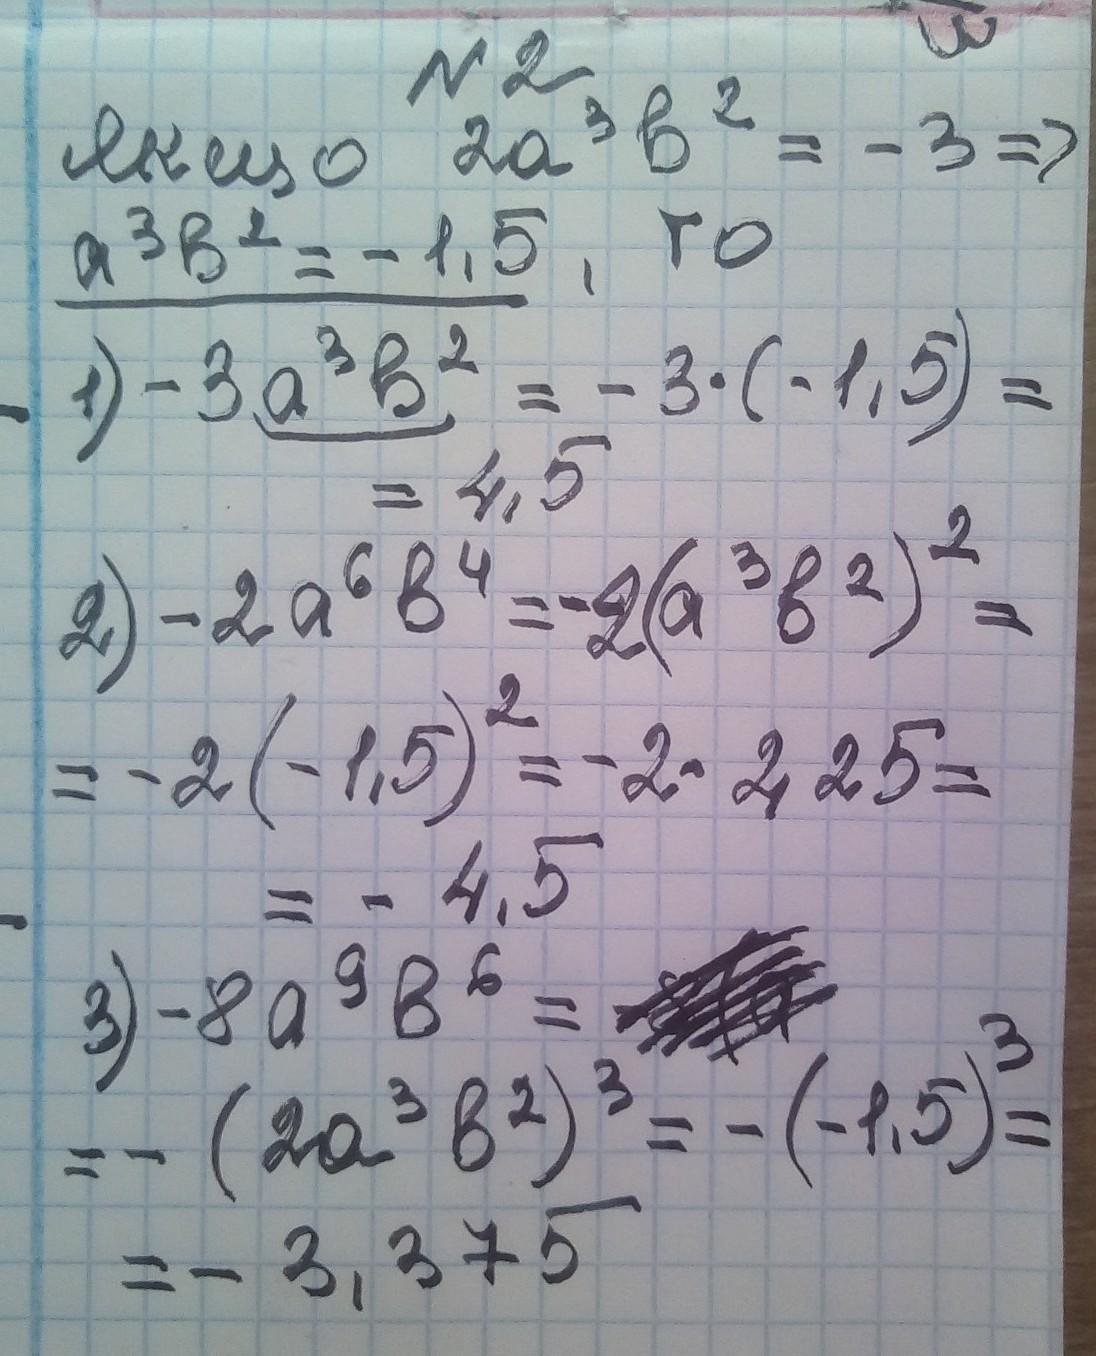 №2
Якщо 2a³b² = -3 =>
a³b² = -1,5, то
1) -3a³b² = -3·(-1,5) =
= 4,5
2) -2a⁶b⁴ = -2(a³b²)² =
= -2(-1,5)² = -2·2,25 =
= -4,5
3) -8a⁹b⁶ =
= -(2a³b²)³ = -(-1,5)³ =
= -3,375